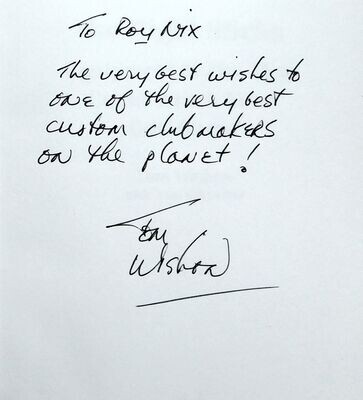 To Roy Nix
The very best wishes to
one of the very best
custom clubmakers
on the planet!
Tom
Wishon